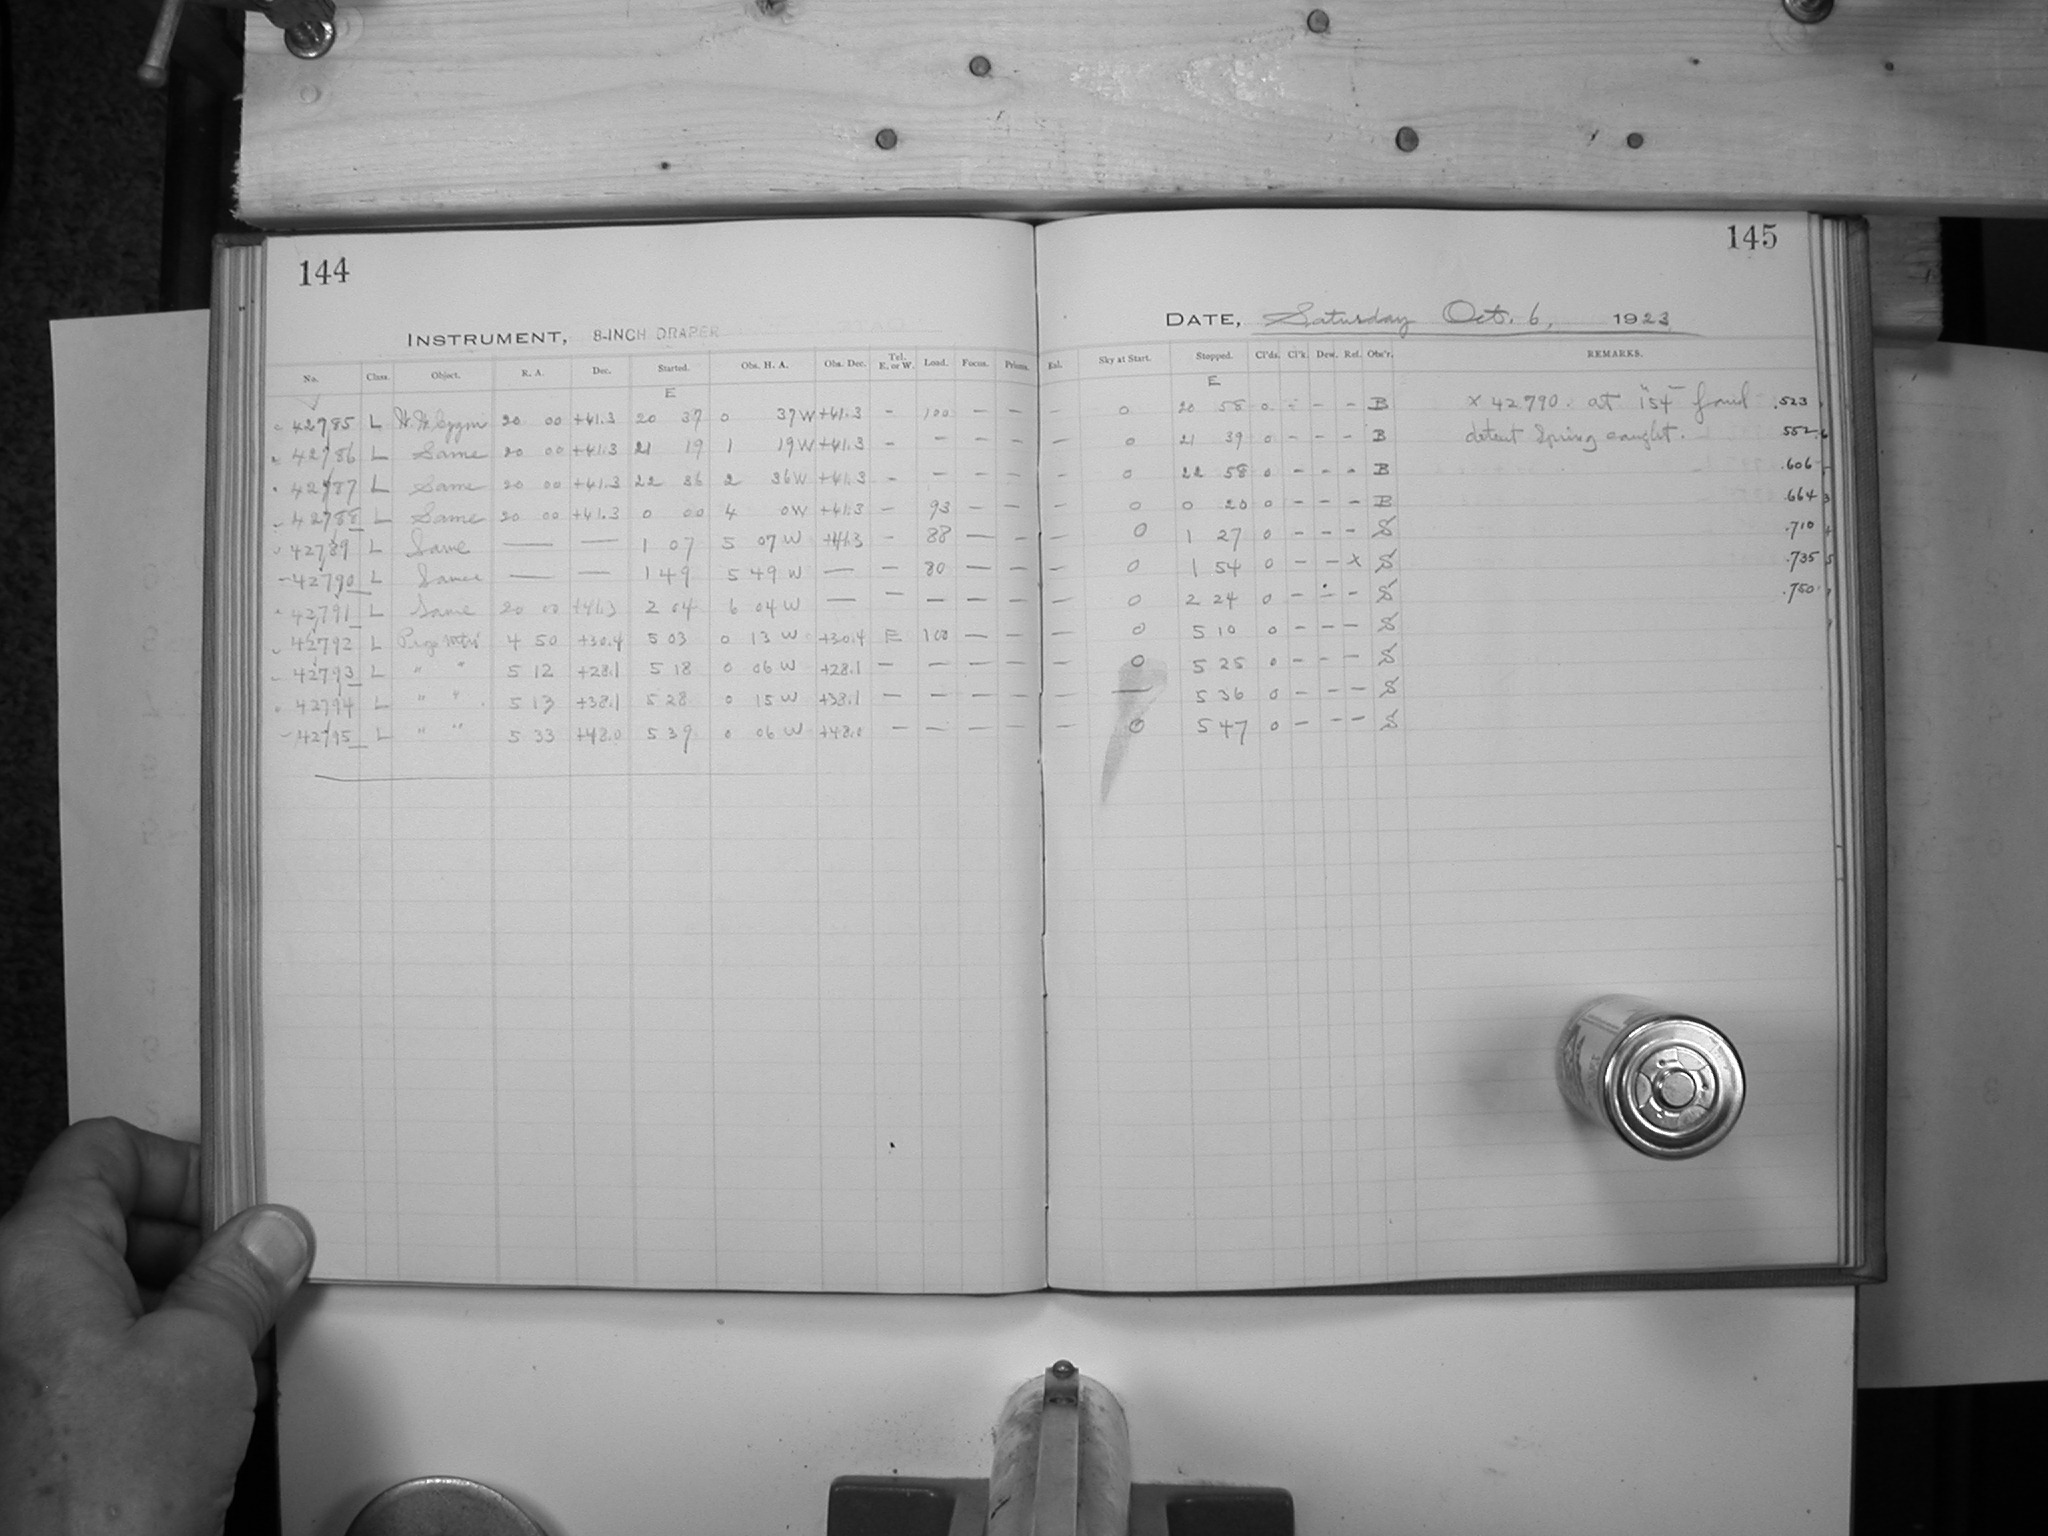 144
INSTRUMENT, 8-INCH DRAPER
No. Class. Object. R. A. Dec. Started. Obs. H. A. Obs. Dec. Tel. E. or W. Load. Focus. Prisms.
E
42785 L 20 00 +41.3 20 37 0 37W +41.3 - 100 - -
42786 L Same 20 00 +41.3 21 19 1 19W +41.3 - - - -
42787 L Same 20 00 +41.3 22 36 2 36W +41.3 - - - -
42788 L Same 20 00 +41.3 0 00 4 0W +41.3 - 93 - -
42789 L Same — — 1 07 5 07 W +41.3 - 88 — -
42790 L Same — — 1 49 5 49 W — - 80 — —
42791 L Same 20 00 +41.3 2 04 6 04 W — - — — —
42792 L 4 50 +30.4 5 03 0 13 W +30.4 E 100 — —
42793 L " " 5 12 +28.1 5 18 0 06 W +28.1 — — — —
42794 L " " 5 13 +38.1 5 28 0 15 W +38.1 — — — —
42795 L " " 5 33 +48.0 5 39 0 06 W +48.0 — — — —
145
DATE, Saturday Oct. 6, 1923
Exl. Sky at Start. Stopped. Cl'ds. Cl'k. Dew. Ref. Obs'r. REMARKS.
E
- 0 20 58 0 - - - B x 42790. at 154 found .523
- 0 21 39 0 - - - B detent Spring caught. 552
- 0 22 58 0 - - - B .606
- 0 0 20 0 - - - B .664
- 0 1 27 0 - - - S .710
— 0 1 54 0 - - x S .735
— 0 2 24 0 - - - S .750
— 0 5 10 0 - - - S
— 0 5 25 0 - - - S
— — 5 36 0 - - - S
— 0 5 47 0 - - - S